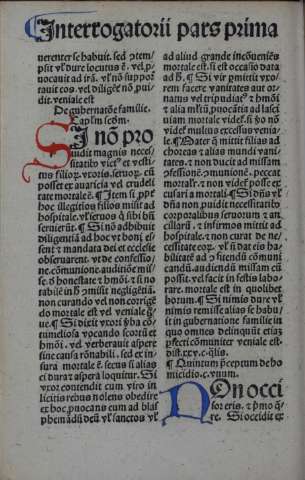 Interrogatorii pars prima
uerenter se habuit. sed ꝯtemp
sit vl̄ dure locutus ē. vel ꝓ
uocauit ad irā. vl̄ nō suppor
tauit eos. vel diligēs nō pui
dit. veniale est
De gubernatōe familie.
Caplm̄ scd̄m.
SI nō pro
uidit magnis neces
sitatib̄ vict⁹ et vestit⁹
filioꝝ. vxoris. seruoꝝ. cū
posset ex auaricia vel crudeli
tate mortale ē. ¶ Item si ꝓpt̄
hoc illegitios filios misit ad
hospitale. vl̄ seruos q̄ sibi bn̄
seruierūt. ¶ Si nō adhibuit
diligentiā ad hoc vt boni eē
sent ⁊ mandata dei et ecclesie
obseruarent. vt de confessio
ne. cōmunione. auditiōe mis
se. ⁊ honestate ⁊
rabile in ꝑ simili
non curando vel non corrigē
do mortale est vel veniale q̄
us. ¶ Si dixit vxori
tumeliosa vocando scortū
vel verberauit asper̄
sine causa rōnabili. sed ex in
iuria mortale ē. secus si alias
ei durā aspera loquitur. Si
vxor contendit cum viro in
licitis rebus nolens obedire
ex hoc ꝓuocans eum ad blas
phēm ādū deū vl̄ sanctos vl̄
ad aliud grande inconueniēs
mortale est. si est occasio data
ad
rem facere vanitates aut or
natus vel tripudiat⁹
alia
uiam mortale videt̄. si nō
videt̄ multus excessus venia
le. ¶ Mater q̄ mittit filias ad
choreas ⁊ alias mundi vani
tates. ⁊ non ducit ad missam
ꝯfessionē. ꝯmunionē. peccat
mortalr̄. ⁊ non videt̄ posse ex
cusari a mortali. ¶ Si dn̄s vl̄
dn̄a non puidit necessitatib̄
corporalibus seruorum ⁊ an
cillarū. ⁊ infirmos mittit ad
hospitale. ⁊ non curat de ne
cessitate eoꝝ. vl̄ si dat eis ha
bilitatē ad ꝯfitendū cōmuni
candū. audiendū missam cū
possit. vel facit in festis labo
rare. mortale est in quolibet
horum. ¶ Si nimis dure vl̄
nimis remisse alias se habu
it in gubernatione familie in
quo omnes delinquūt etiaꝫ
ꝑfecti cōmuniter veniale est
dist.xxv.c.q̄lis.
¶ Quintum ꝑceptum de ho
micidio.c.vnum.
NOn occi
sor eris. ⁊
re. Si occidit ex